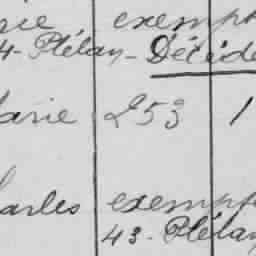 rie exempt
4 - Plélan - Décédé
arie 253 1
arles exempt
43 - Plélan